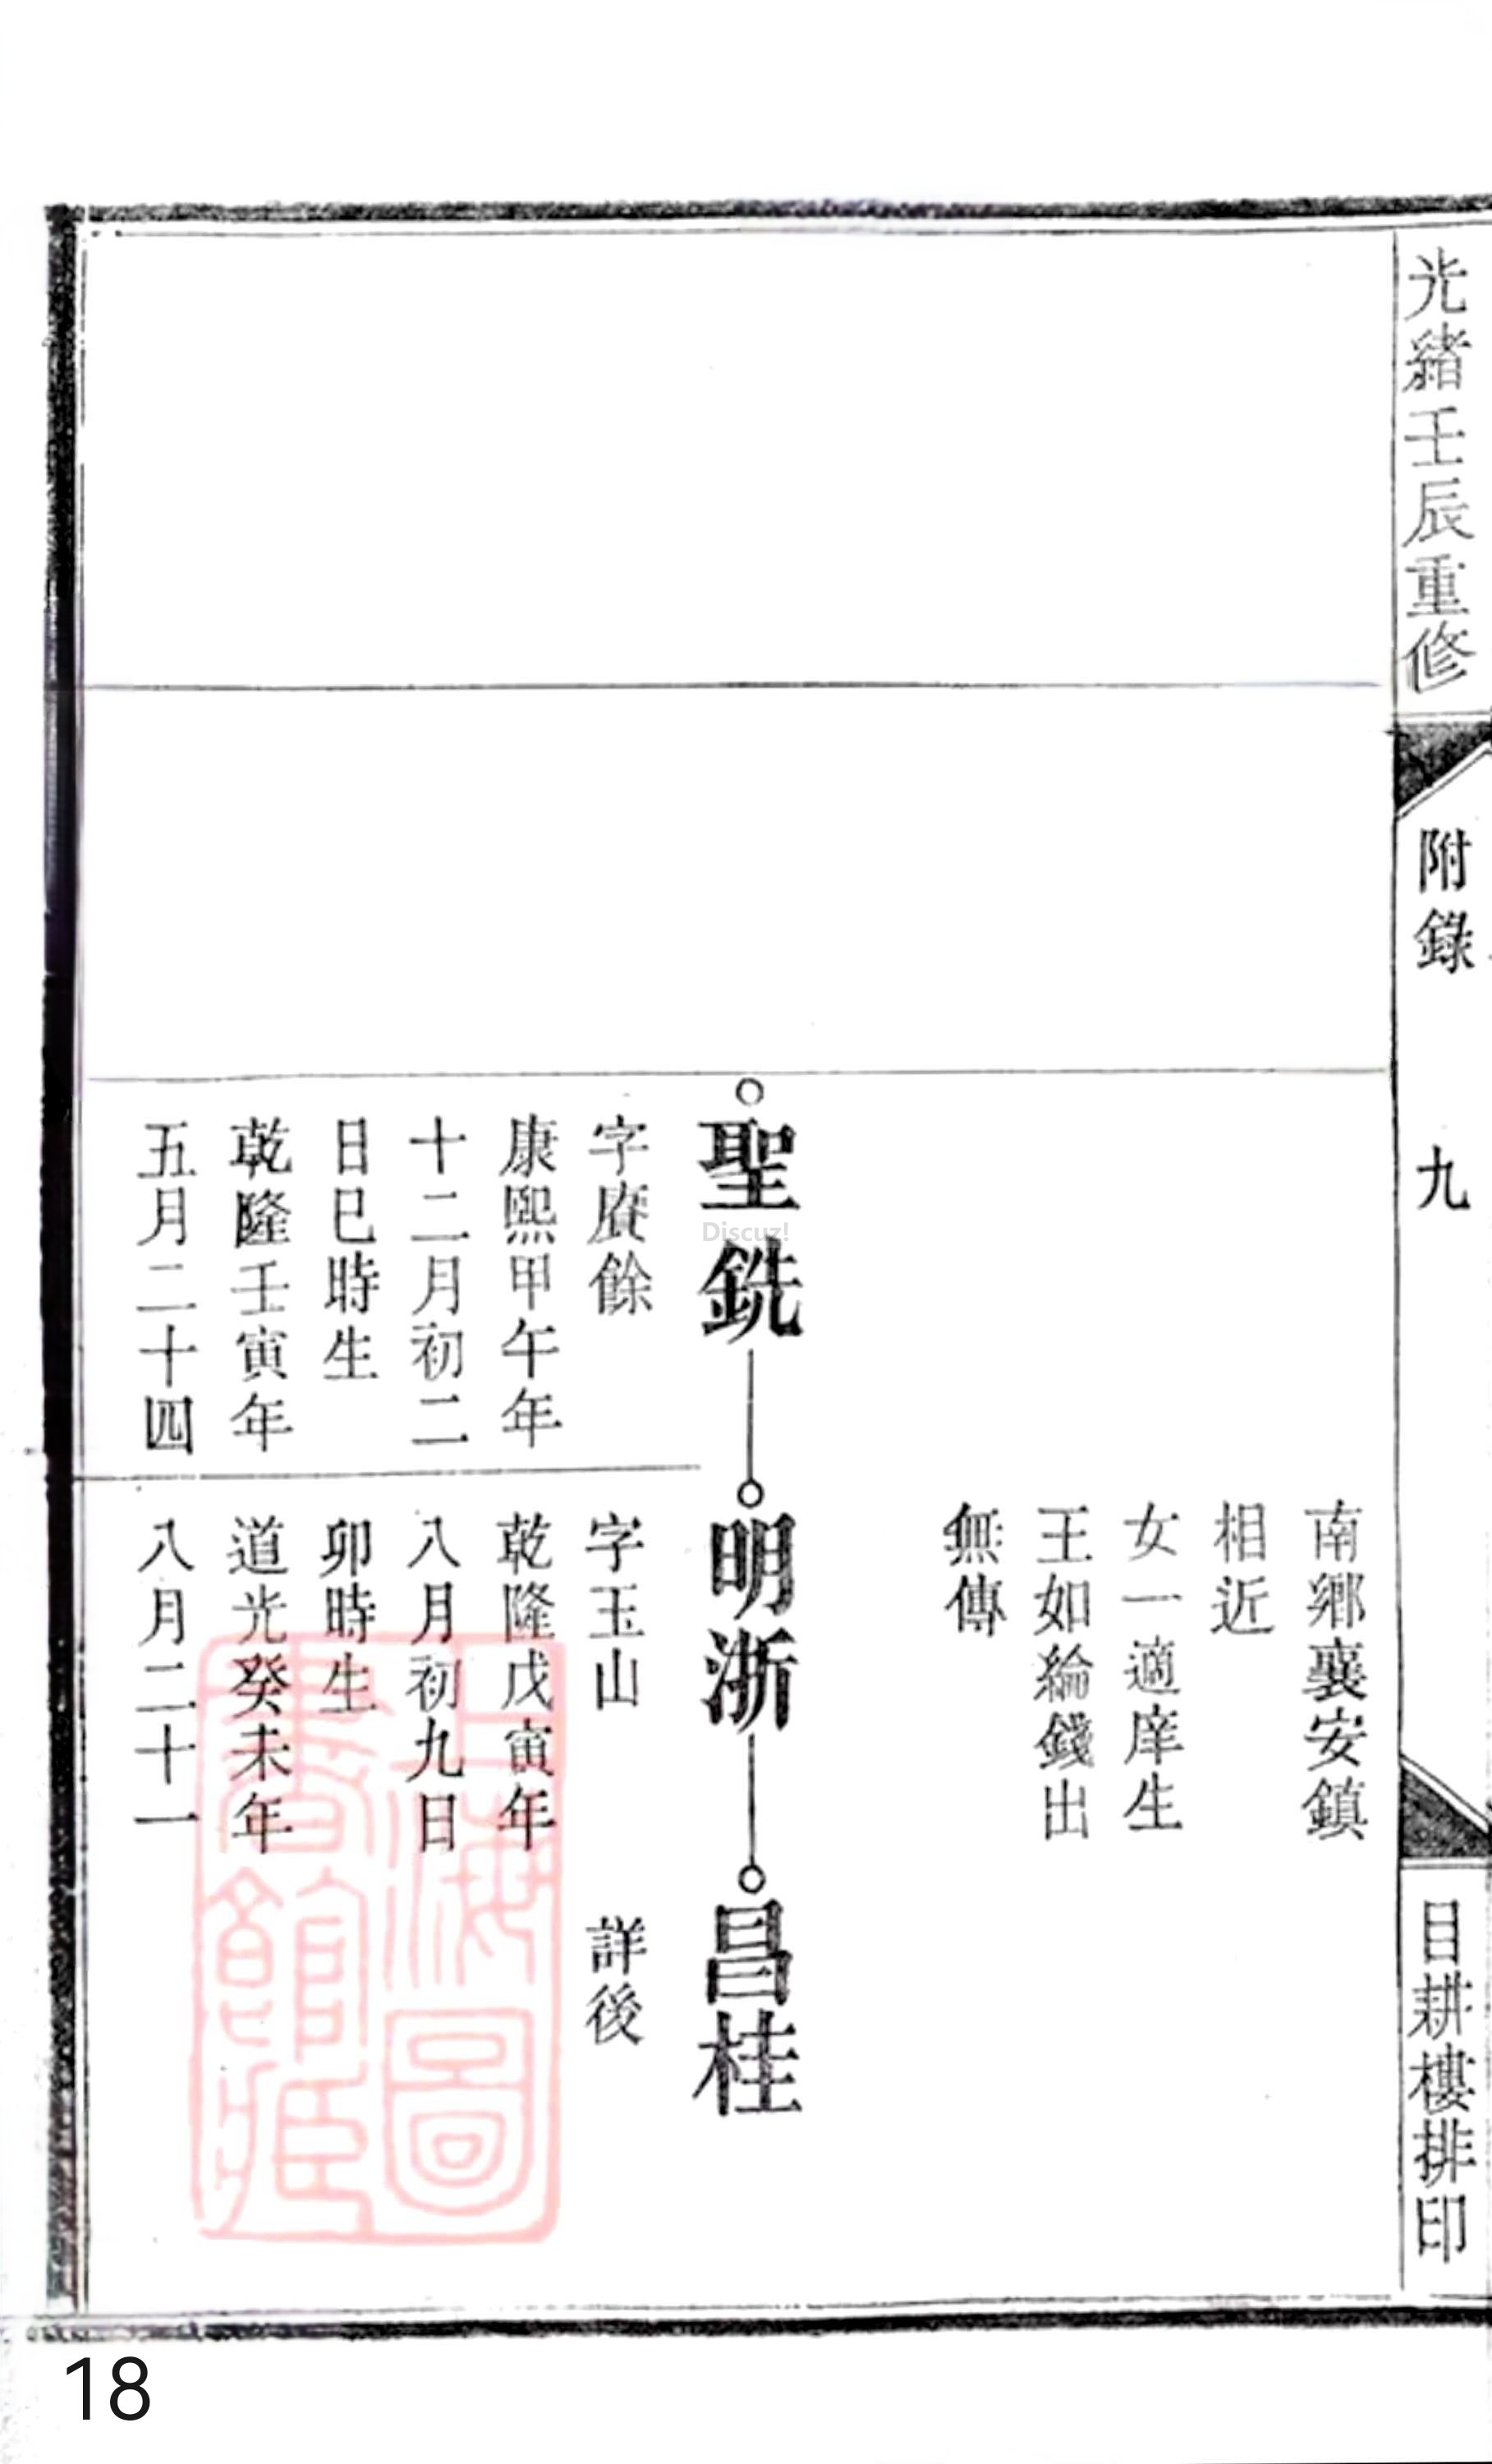 光緒壬辰重修
附錄
九
目耕樓排印
南鄉襄安鎮
相近
女一適庠生
王如綸錢出
無傳
聖銑
明浙
昌桂
字賡餘
康熙甲午年
十二月初二
日巳時生
乾隆壬寅年
五月二十四
字玉山
乾隆戊寅年
八月初九日
卯時生
道光癸未年
八月二十一
詳後
上海圖書館藏
Discuz!
18